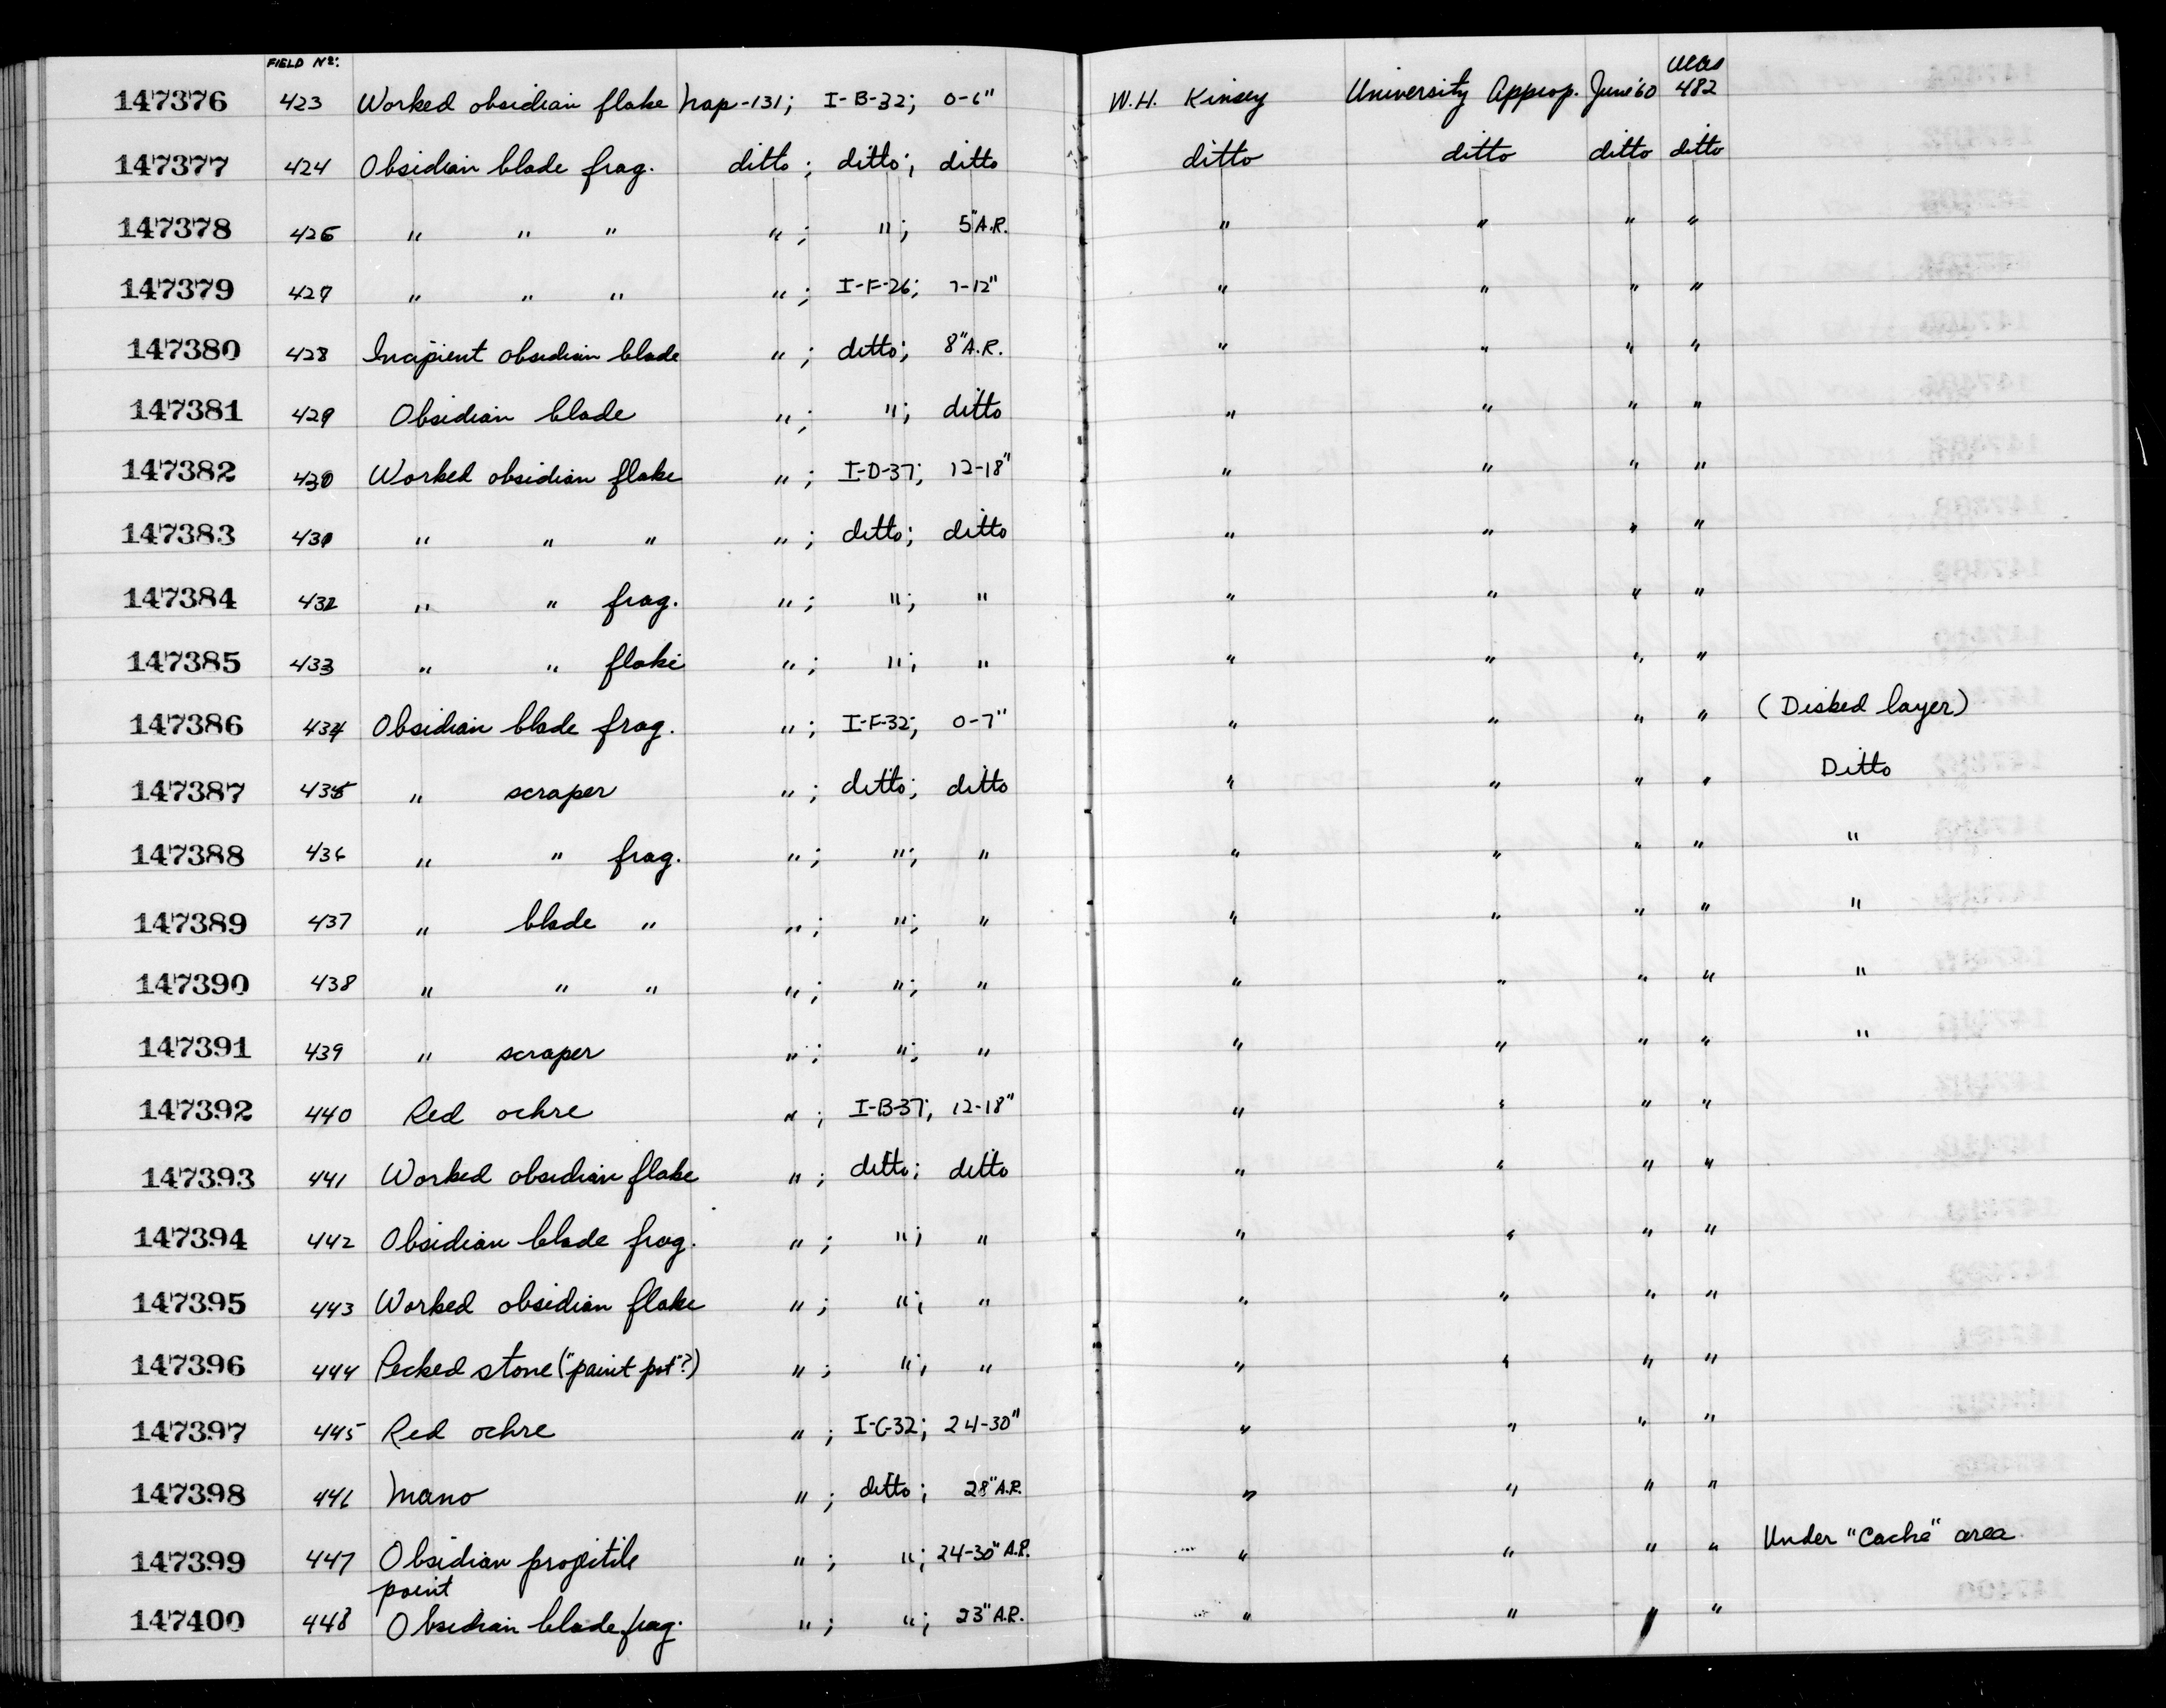 FIELD Nº: UCAS
147376 423 Worked obsidian flake Nap-131; I-B-32; 0-6" W.H. Kinsey University Approp. June '60 482
147377 424 Obsidian blade frag. ditto; ditto; ditto ditto ditto ditto ditto
147378 426 " " " "; "; 5" A.R. " " " "
147379 427 " " " "; I-F-26; 7-12" " " " "
147380 428 Incipient obsidian blade "; ditto; 8" A.R. " " " "
147381 429 Obsidian blade "; "; ditto " " " "
147382 430 Worked obsidian flake "; I-D-37; 12-18" " " " "
147383 431 " " " "; ditto; ditto " " " "
147384 432 " " frag. "; "; " " " " "
147385 433 " " flake "; "; " " " " "
147386 434 Obsidian blade frag. "; I-F-32; 0-7" " " " " (Disked layer)
147387 435 " scraper "; ditto; ditto " " " " Ditto
147388 436 " " frag. "; "; " " " " " "
147389 437 " blade " "; "; " " " " " "
147390 438 " " " "; "; " " " " " "
147391 439 " scraper "; "; " " " " " "
147392 440 Red ochre "; I-B-37; 12-18" " " " "
147393 441 Worked obsidian flake "; ditto; ditto " " " "
147394 442 Obsidian blade frag. "; "; " " " " "
147395 443 Worked obsidian flake "; "; " " " " "
147396 444 Pecked stone ("paint pot"?) "; "; " " " " "
147397 445 Red ochre "; I-C-32; 24-30" " " " "
147398 446 Mano "; ditto; 28" A.R. " " " "
147399 447 Obsidian projectile "; "; 24-30" A.R. " " " " Under "Cache" area
point
147400 448 Obsidian blade frag. "; "; 23" A.R. " " " "